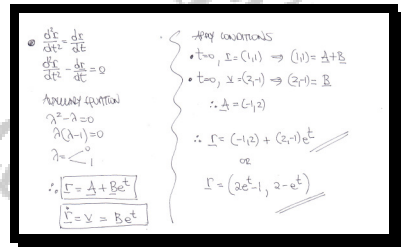 d²r/dt² = dr/dt
d²r/dt² - dr/dt = 0
AUXILIARY EQUATION
λ² - λ = 0
λ(λ-1) = 0
λ = < 0 1
∴ r = A + Be^t
ṙ = v = Be^t
APPLY CONDITIONS
• t=0, r=(1,1) ⇒ (1,1) = A+B
• t=0, v=(2,-1) ⇒ (2,-1) = B
∴ A = (-1,2)
∴ r = (-1,2) + (2,-1)e^t
OR
r = (2e^t-1, 2-e^t)